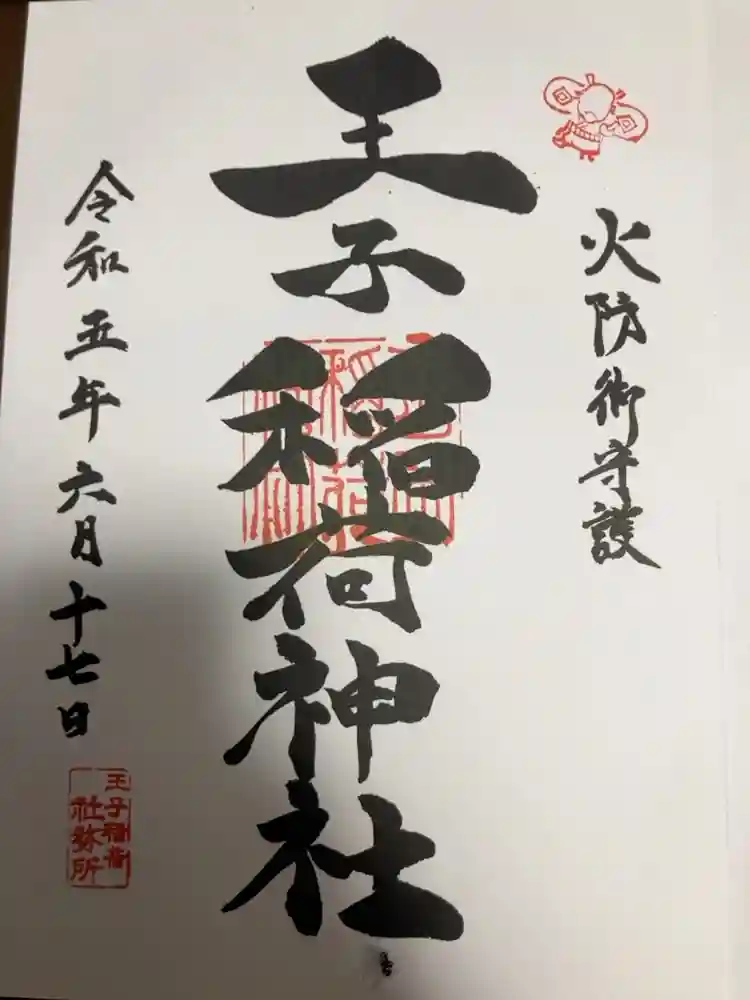 火防御守護
王子稲荷神社
令和五年六月十七日
王子稲荷
社務所